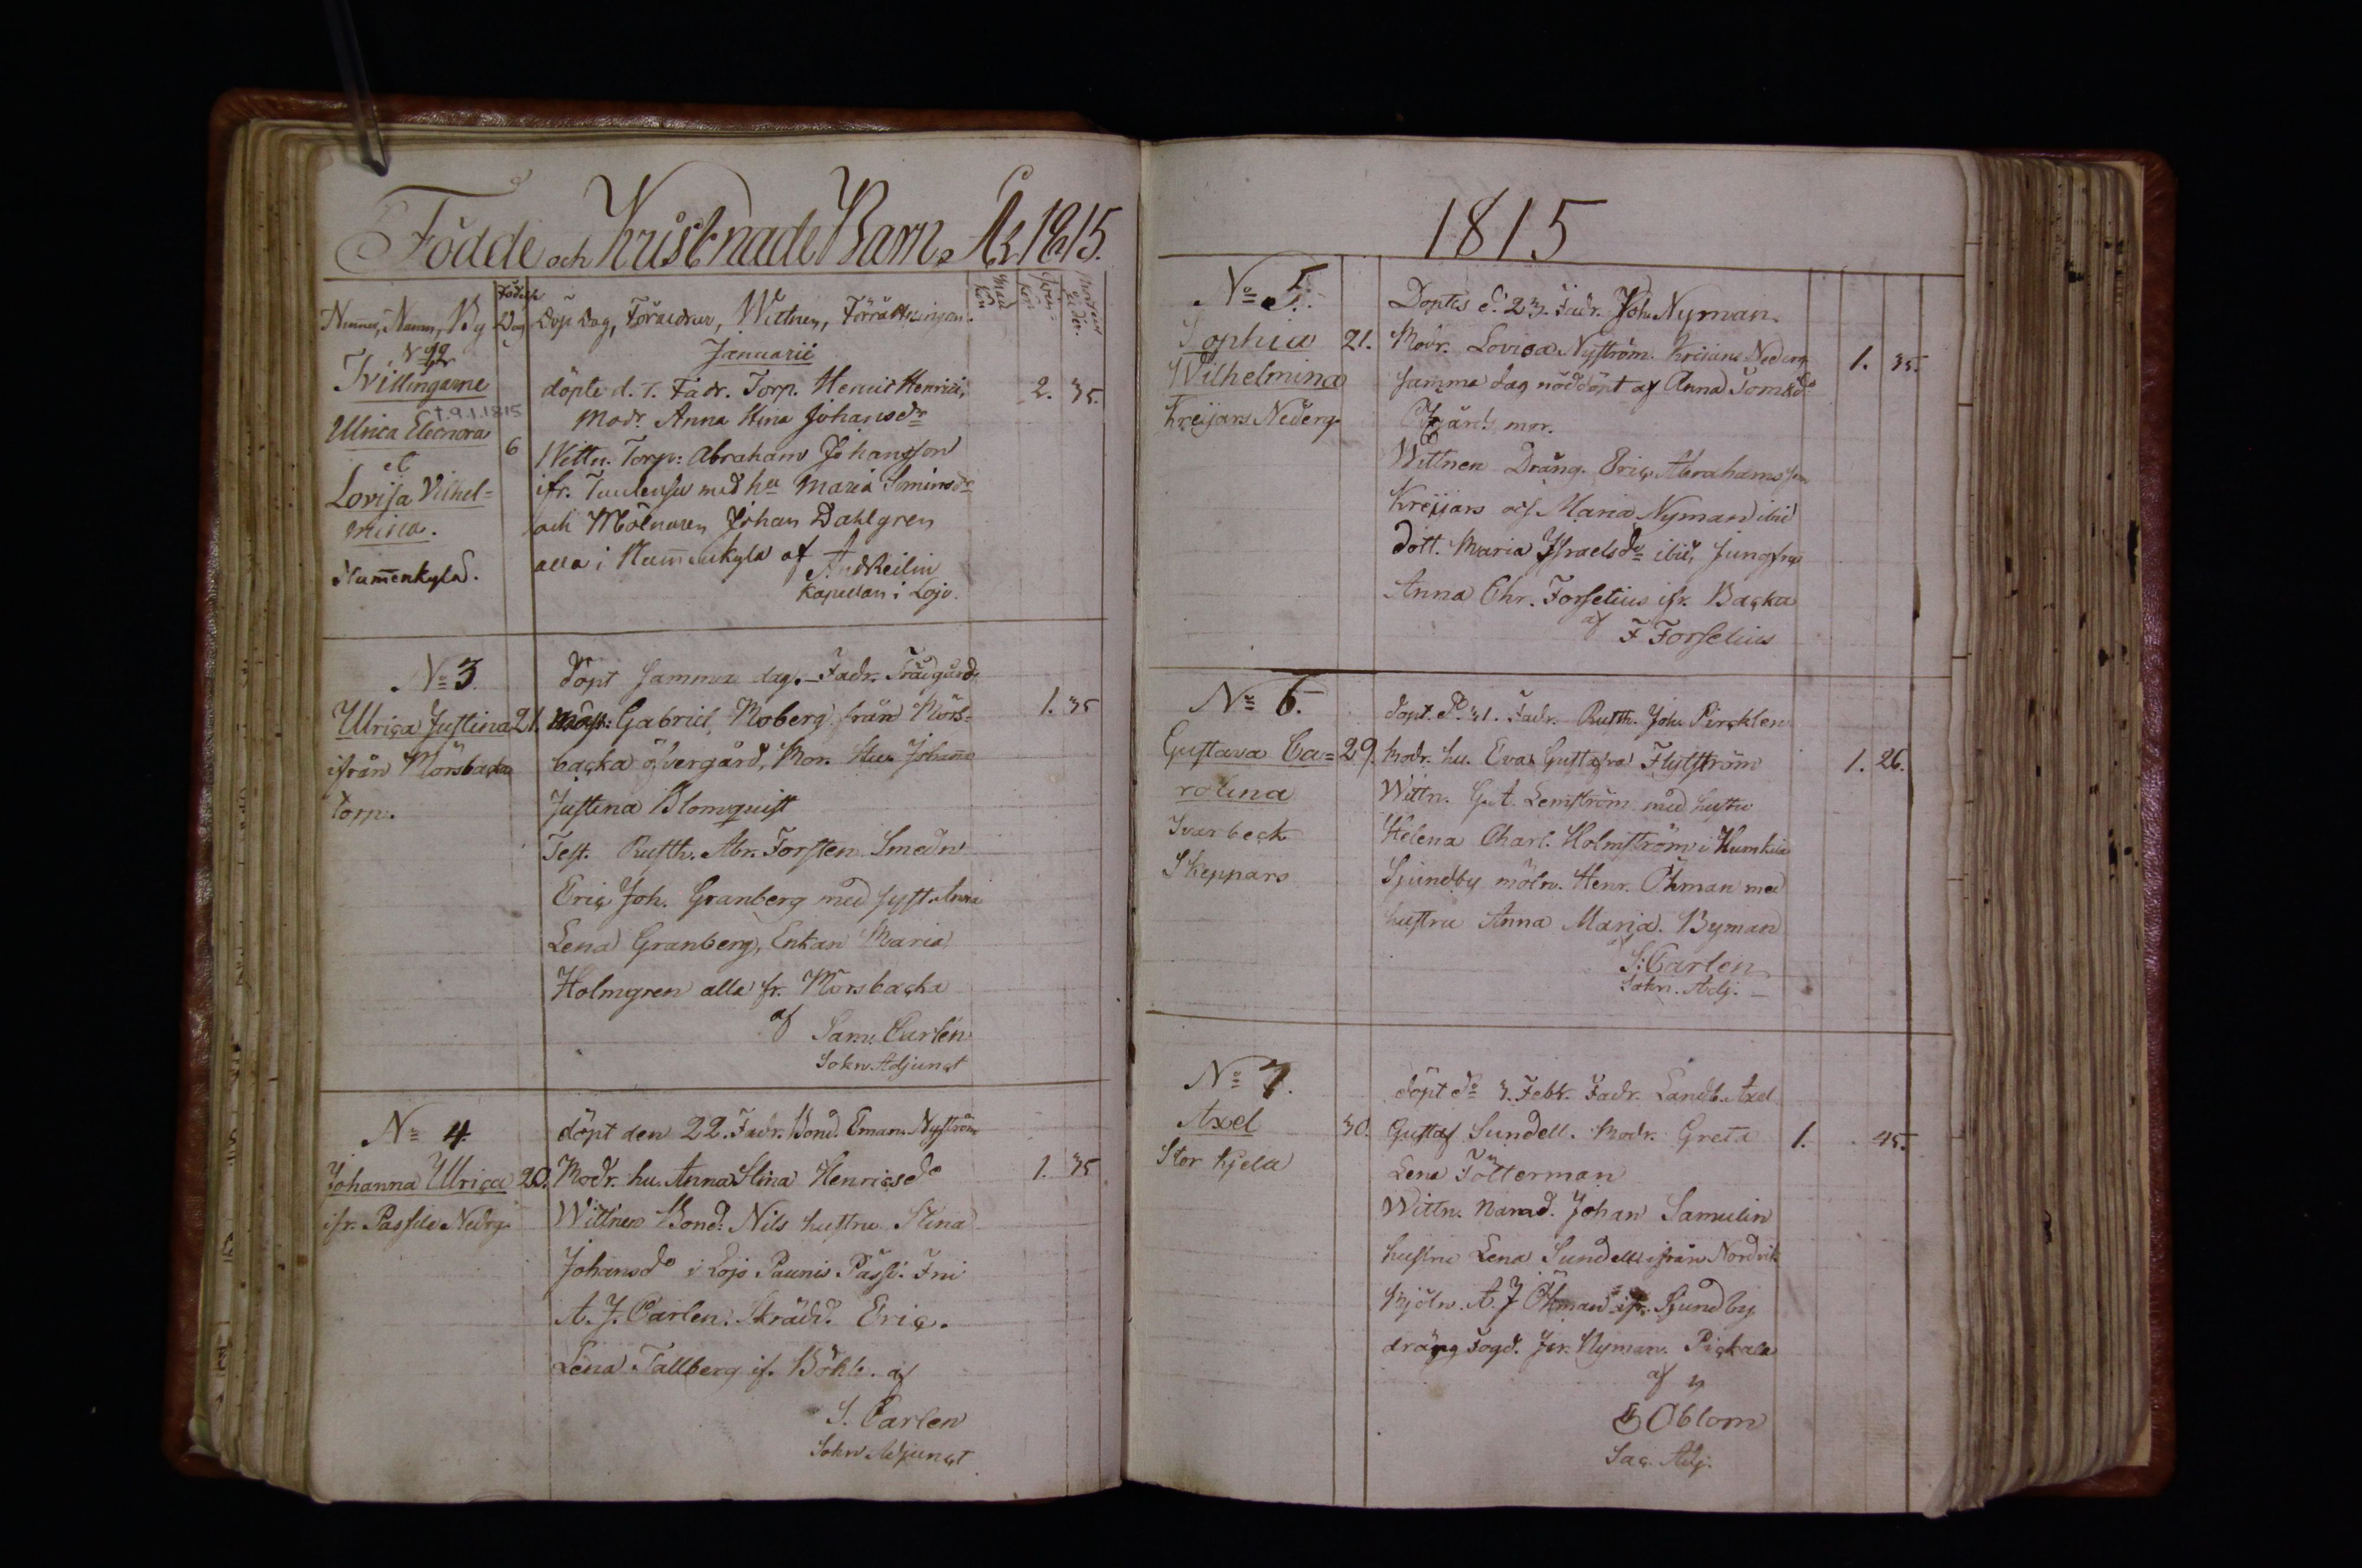 Födde och Kristnade Barn År 1815.
Numer, Namn, By
Födelse Dag
Döp Dag, Föräldrar, Wittnen, Förrättningen.
Man Kön
Qvin Kön
Modrens ålder.
Januarii
No 1, 2
Tvillingarne
t.9.1.1815
Ulrica Eleonora
et
Lovisa Vilhel=
mina.
Hummenkylä.
6
döpte d. 7. Fadr. Torp. Henric Henrici,
Modr. Anna Stina Johansdr
Wittn. Torp: Abraham Johansson
ifr. med hu Maria Siminsdr
och Mölnaren Johan Dahlgren
alla i Hummenkyla af
And Keilin
Kapellan i Lojo.
2. 35.
No 3.
Ulrica Justina 21.
ifrån Mörsbacka
torp.
döpt samma dag. Fadr. Trädgårds
mäst: Gabriel Moberg från Mörs-
backa öfvergård, Mor. Hu. Johanna
Justina Blomquist
Test. Rustth. Abr. Forsten Smedn
Eric Joh. Granberg med syst. Anna
Lena Granberg, Enkan Maria
Holmgren alla fr. Mörsbacka
af
Sam. Carlén
Sokn Adjunct
1. 35
No 4.
Johanna Ulrica 20.
ifr. Passila Nedrg.
döpt den 22. Fadr. Bond. Eman. Nyström
Modr. hu. Anna Stina Henricsdr
Wittnen Bond: Nils hustru Stina
Johansdr i Lojo Paunis Passi. Fru
A. J. Carlen. Skrädd. Eric.
Lena Tallberg if. Böhle. af
S. Carlen
Sokn Adjunct
1. 35
1815
No 5.
Sophia 21.
Wilhelmina
Kreijars Nederg.
Döptes d. 23. Fadr. Joh. Nyman.
Modr. Lovisa Nyström. Kreijans Nederg.
samma dag nöddöpt af Anna Tomasdr
mor.
Wittnen Dräng. Eric Abrahamsson
Kreijars och Maria Nyman ibid
dott. Maria Israelsdr ibid, Jungfru
Anna Chr. Forselius ifr. Backa
af F Forselius
1. 35.
No 6.
Gustava Ca= 29.
rolina
Ivarbeck
Skeppars
döpt. do 31. Fadr. Rustth. Joh. Pircklen
Modr. hu. Eva Gustafva Flytström
Wittn. G. A. Lemström med hustru
Helena Charl. Holmström i Humkila
Sjundby möln. Henr. Öhman med
hustru Anna Maria Byman
af
S: Carlen
Sokn. Adj.
1. 26.
No 7.
Axel 30.
Stor Kjela
döpt do 3. Febr. Fadr. Landb. Axel
Gustaf Sundell. Modr. Greta
Lena Fötterman
Wittn. Johan Samulin
hustru Lena Sundell ifrån Nordvik
Mjöln. A. J Öhman ifr. Sjundby
dräng fogd. Jer. Nyman. Pickala
af
Oblom
Sac. Adj.
1. 45.